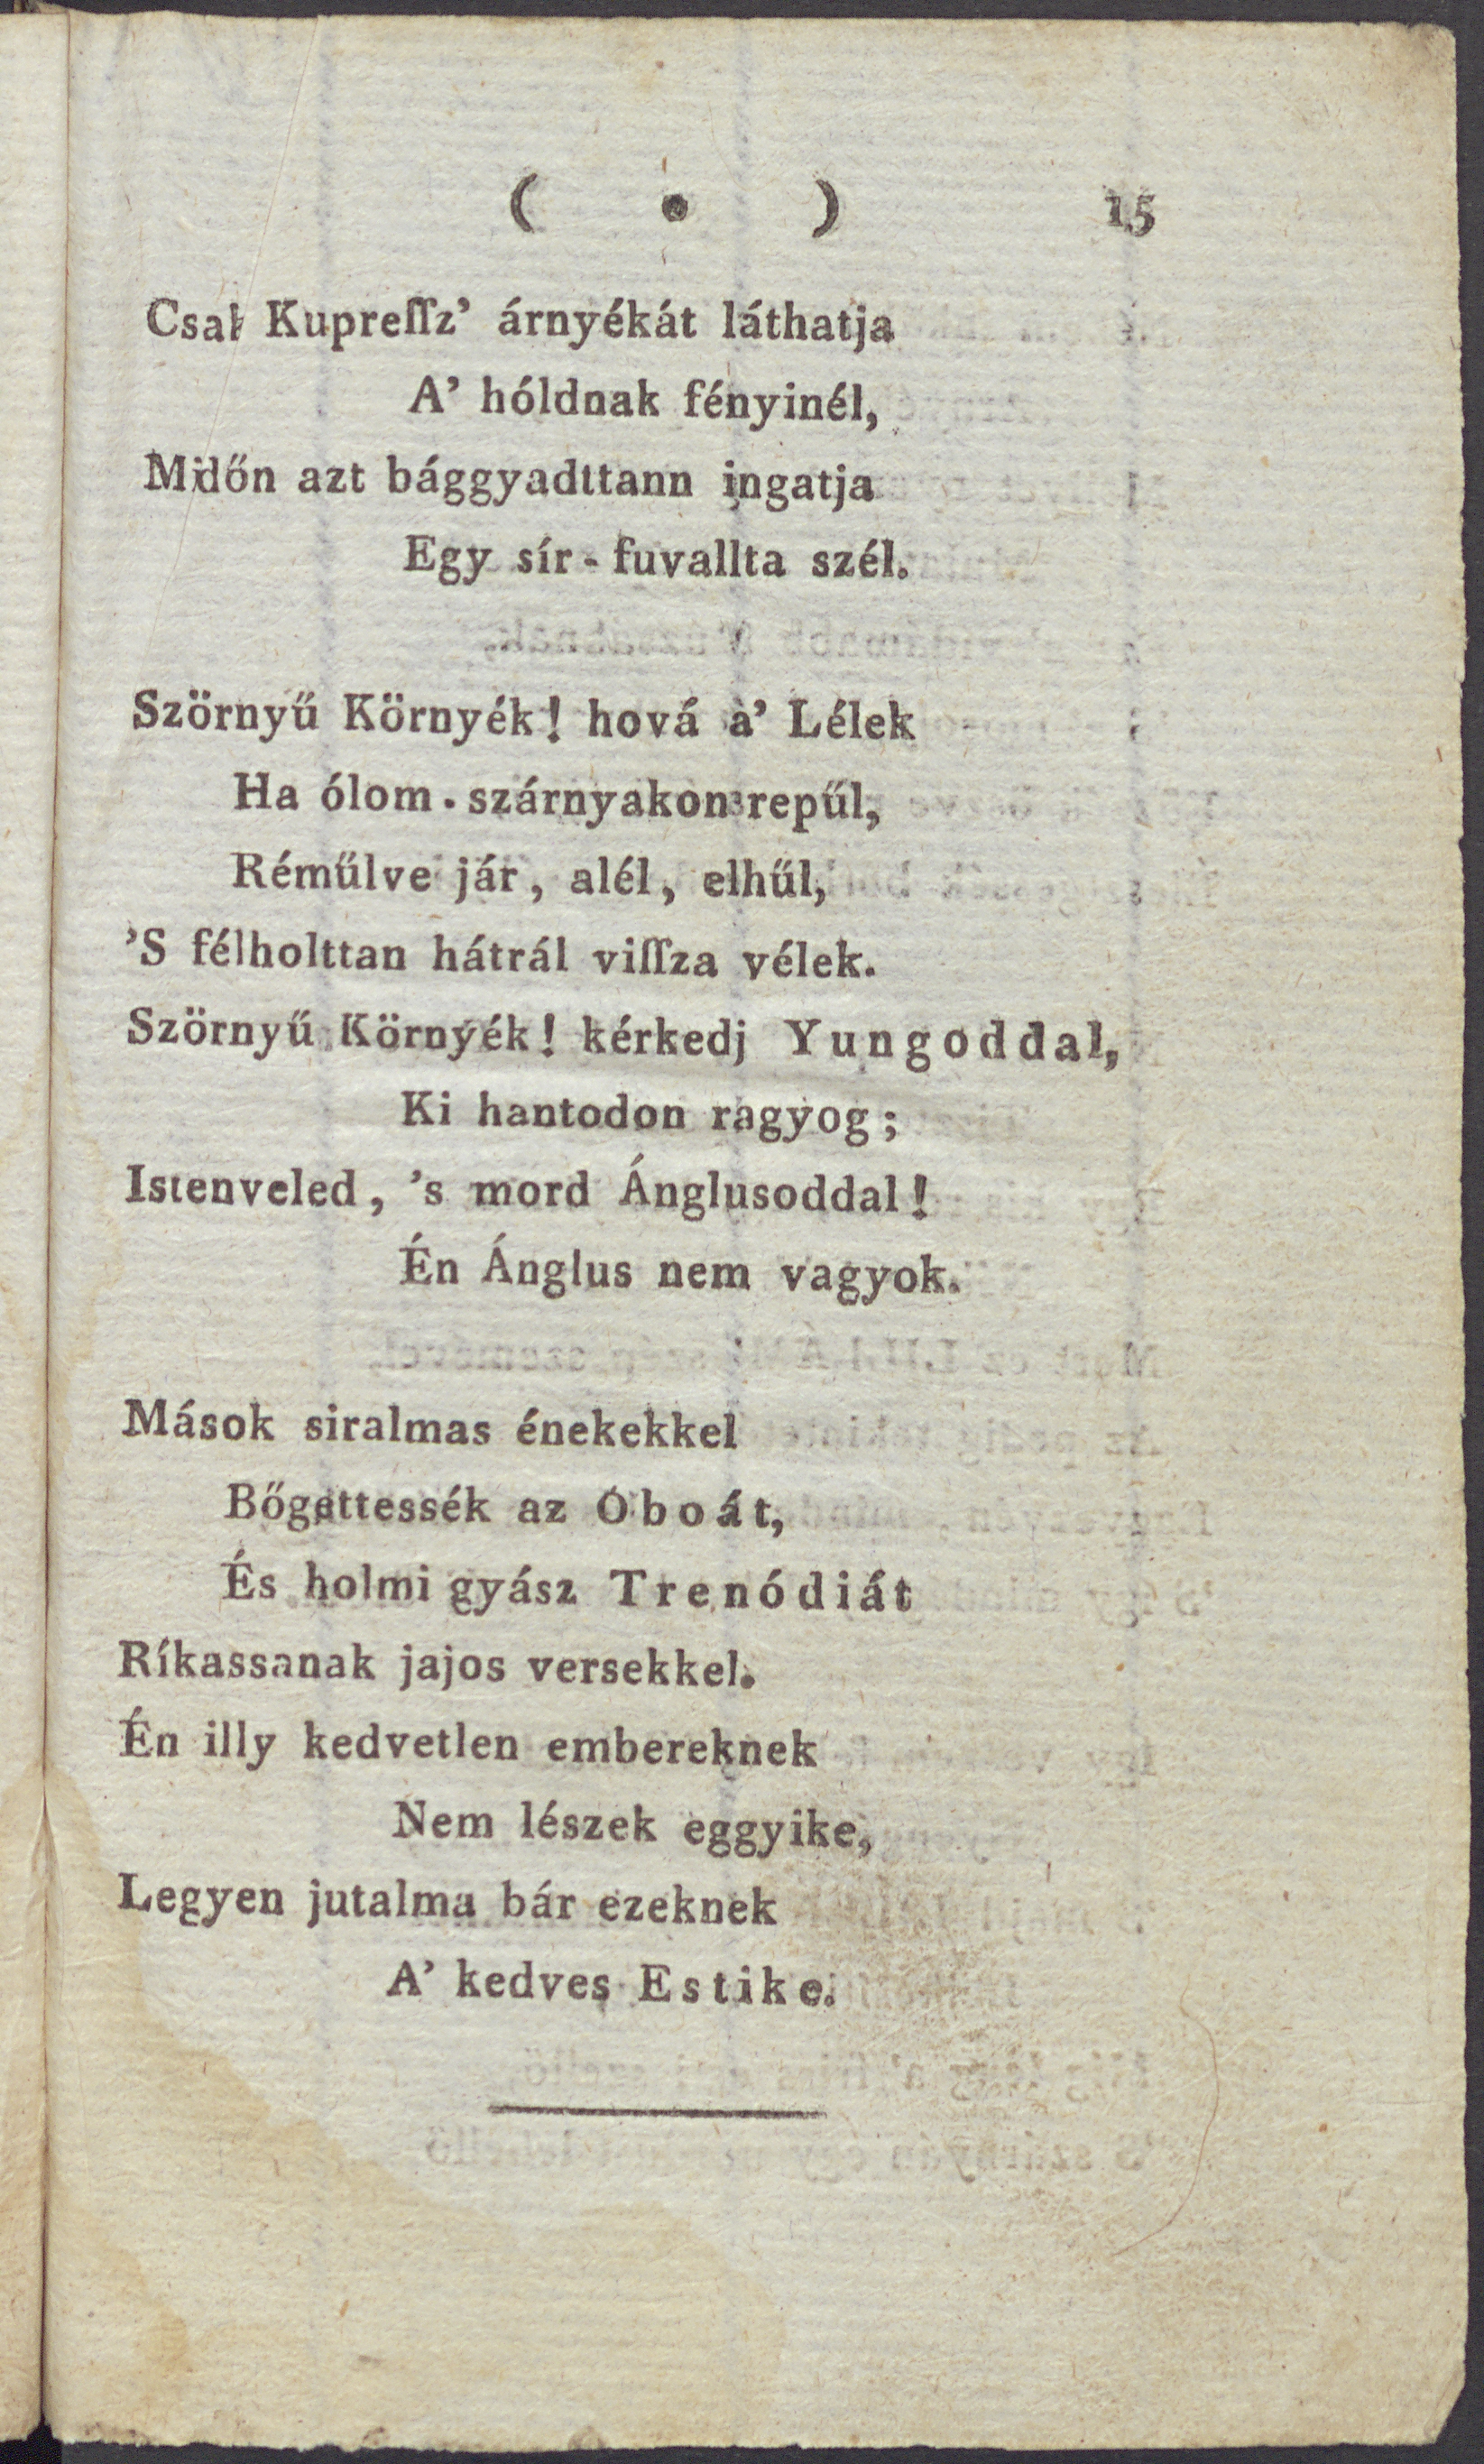 ( • ) 15
Csak Kupreſſz’ árnyékát láthatja
A’ hóldnak fényinél,
Midőn azt bággyadttann ingatja
Egy sír-fuvallta szél.
Szörnyű Környék! hová a’ Lélek
Ha ólom-szárnyakon repűl,
Réműlve jár, alél, elhűl,
’S félholttan hátrál viſſza vélek.
Szörnyű Környék! kérkedj Yungoddal,
Ki hantodon ragyog;
Istenveled, ’s mord Ánglusoddal!
Én Ánglus nem vagyok.
Mások siralmas énekekkel
Bőgettessék az Oboát,
És holmi gyász Trenódiát
Ríkassanak jajos versekkel.
Én illy kedvetlen embereknek
Nem lészek eggyike,
Legyen jutalma bár ezeknek
A’ kedves Estike.